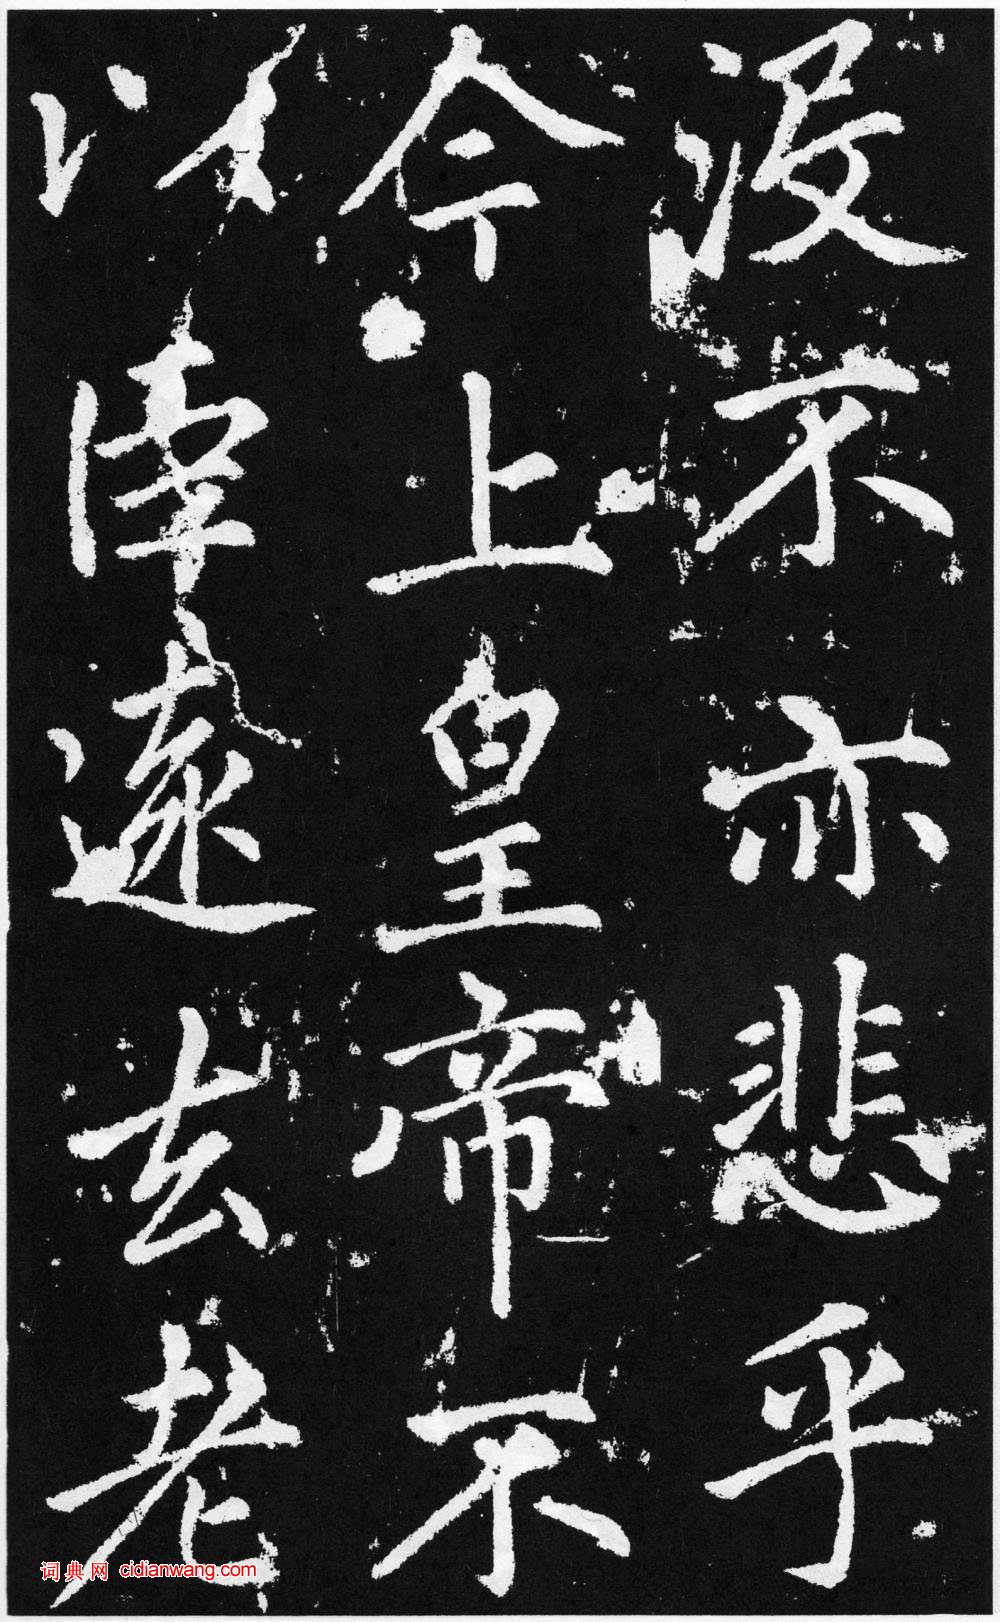 没不亦悲乎
今上皇帝不
以臣遠去老
词典网 cidianwang.com